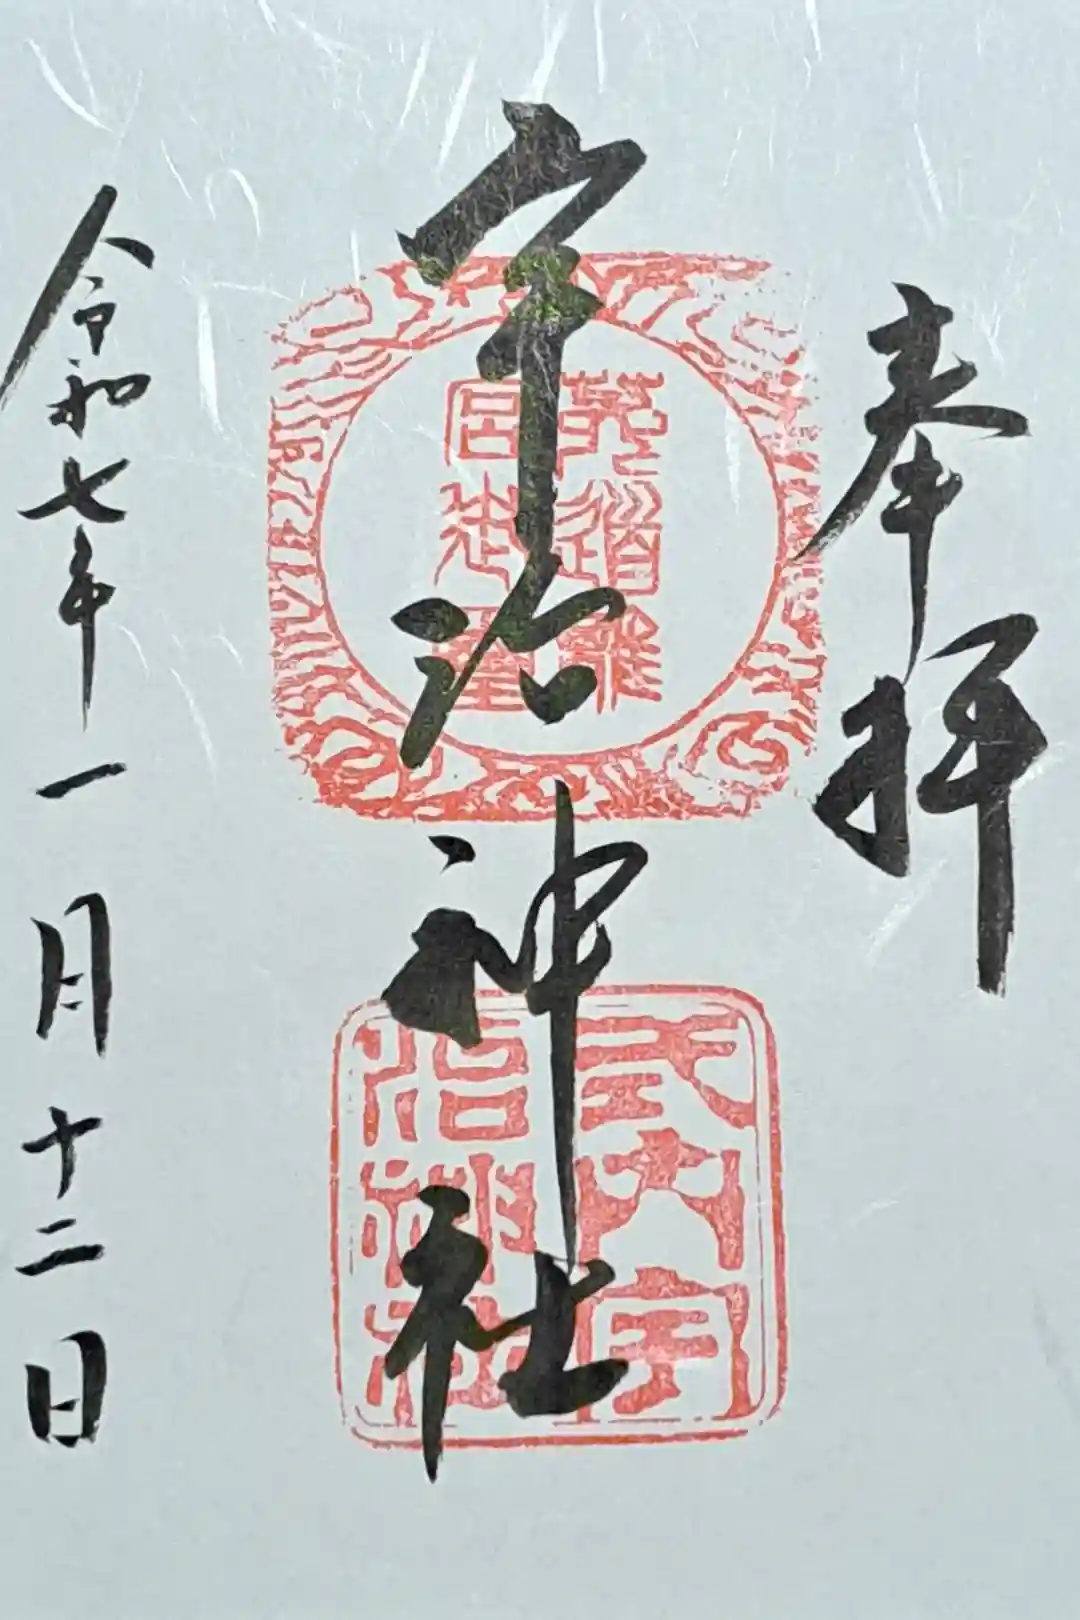 奉拝
宇治神社
令和七年一月十二日